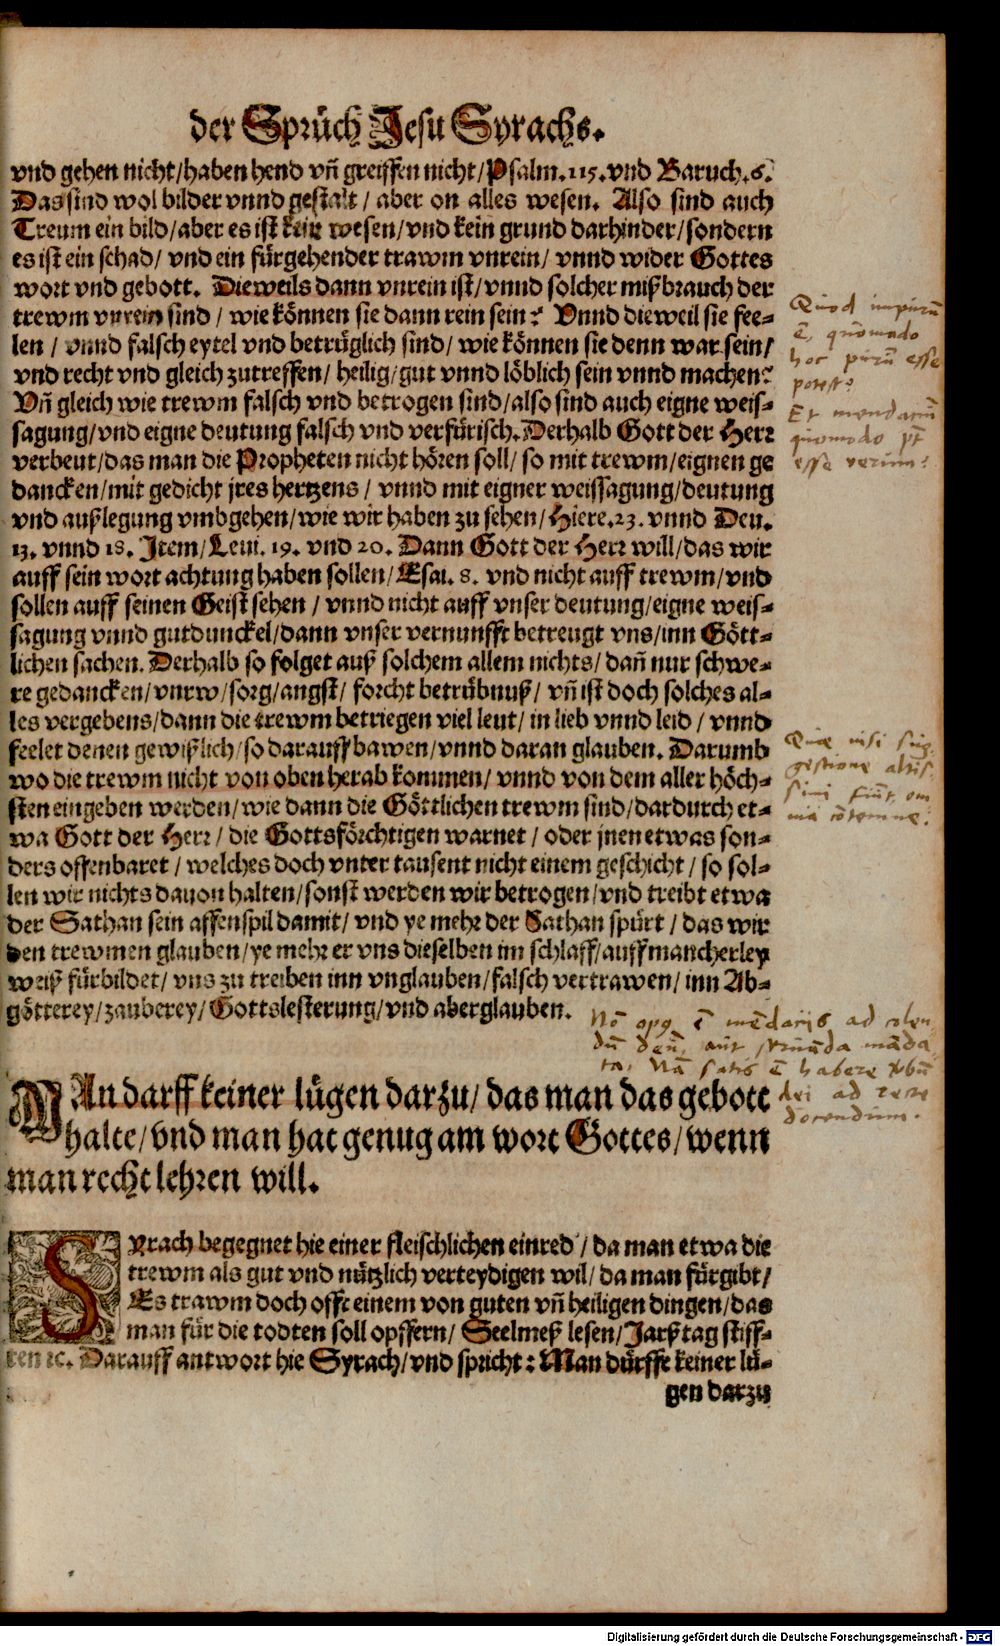 der Sprüch Jesu Syrachs.
vnd gehen nicht/haben hend vñ greiffen nicht/Psalm.115.vnd Baruch.6.
Das sind wol bilder vnnd gestalt / aber on alles wesen. Also sind auch
Treum ein bild/aber es ist kein wesen/vnd kein grund darhinder/sondern
es ist ein schad/ vnd ein fürgehender trawm vnrein/ vnnd wider Gottes
wort vnd gebott. Dieweils dann vnrein ist/vnnd solcher mißbrauch der
trewm vnrein sind / wie können sie dann rein sein? Vnnd dieweil sie fee-
len / vnnd falsch eytel vnd betrüglich sind/ wie können sie denn war sein/
vnd recht vnd gleich zutreffen/ heilig/gut vnnd löblich sein vnnd machen?
Vñ gleich wie trewm falsch vnd betrogen sind/also sind auch eigne weis-
sagung/vnd eigne deutung falsch vnd verfürisch. Derhalb Gott der Herr
verbeut/das man die Propheten nicht hören soll/ so mit trewm/eignen ge
dancken/mit gedicht jres hertzens / vnnd mit eigner weissagung/deutung
vnd außlegung vmbgehen/wie wir haben zu sehen/Hiere.23. vnnd Deu.
13. vnnd 18. Item/Leui. 19. vnd 20. Dann Gott der Herr will/das wir
auff sein wort achtung haben sollen/Esai. 8. vnd nicht auff trewm/vnd
sollen auff seinen Geist sehen / vnnd nicht auff vnser deutung/eigne weis-
sagung vnnd gutdunckel/dann vnser vernunfft betreugt vns/inn Gött-
lichen sachen. Derhalb so folget auß solchem allem nichts/ dañ nur schwe-
re gedancken/vnrw/sorg/angst/ forcht betrübnuß/ vñ ist doch solches al-
les vergebens/dann die trewm betriegen viel leut/ in lieb vnnd leid / vnnd
feelet denen gewißlich/so darauff bawen/vnnd daran glauben. Darumb
wo die trewm nicht von oben herab kommen/ vnnd von dem aller höch-
sten eingeben werden/wie dann die Göttlichen trewm sind/dardurch et-
wa Gott der Herr/ die Gottsförchtigen warnet / oder jnen etwas son-
ders offenbaret / welches doch vnter tausent nicht einem geschicht / so sol-
len wir nichts dauon halten/sonst werden wir betrogen/vnd treibt etwa
der Sathan sein affenspil damit/ vnd ye mehr der Sathan spürt / das wir
den trewmen glauben/ye mehr er vns dieselben im schlaff/auff mancherley
weiß fürbildet/ vns zu treiben inn vnglauben/falsch vertrawen/ inn Ab-
götterey/zauberey/Gottslesterung/vnd aberglauben.
Quod impurũ
ẽ, quomodo
hoc purũ esse
potest?
Et mendatiũ
quomodo pt̃
esse verum?
Quae nisi sug-
gestione altis-
simi fiũt, om
nia cõtemne.
Nõ opq ẽ mẽdacijs ad colen
dũ deũ, aut seruãda mãda
ta, Nã satis ẽ habere vbũ
dei ad recte
docendum.
MAn darff keiner lügen darzu/ das man das gebott
halte/vnd man hat genug am wort Gottes/wenn
man recht lehren will.
SYrach begegnet hie einer fleischlichen einred / da man etwa die
trewm als gut vnd nützlich verteydigen wil/ da man fürgibt/
Es trawm doch offt einem von guten vñ heiligen dingen/das
man für die todten soll opffern/ Seelmeß lesen/Jarßtag stiff-
ten ꝛc. Darauff antwort hie Syrach/vnd spricht: Man dürffe keiner lü-
gen darzu
Digitalisierung gefördert durch die Deutsche Forschungsgemeinschaft - DFG